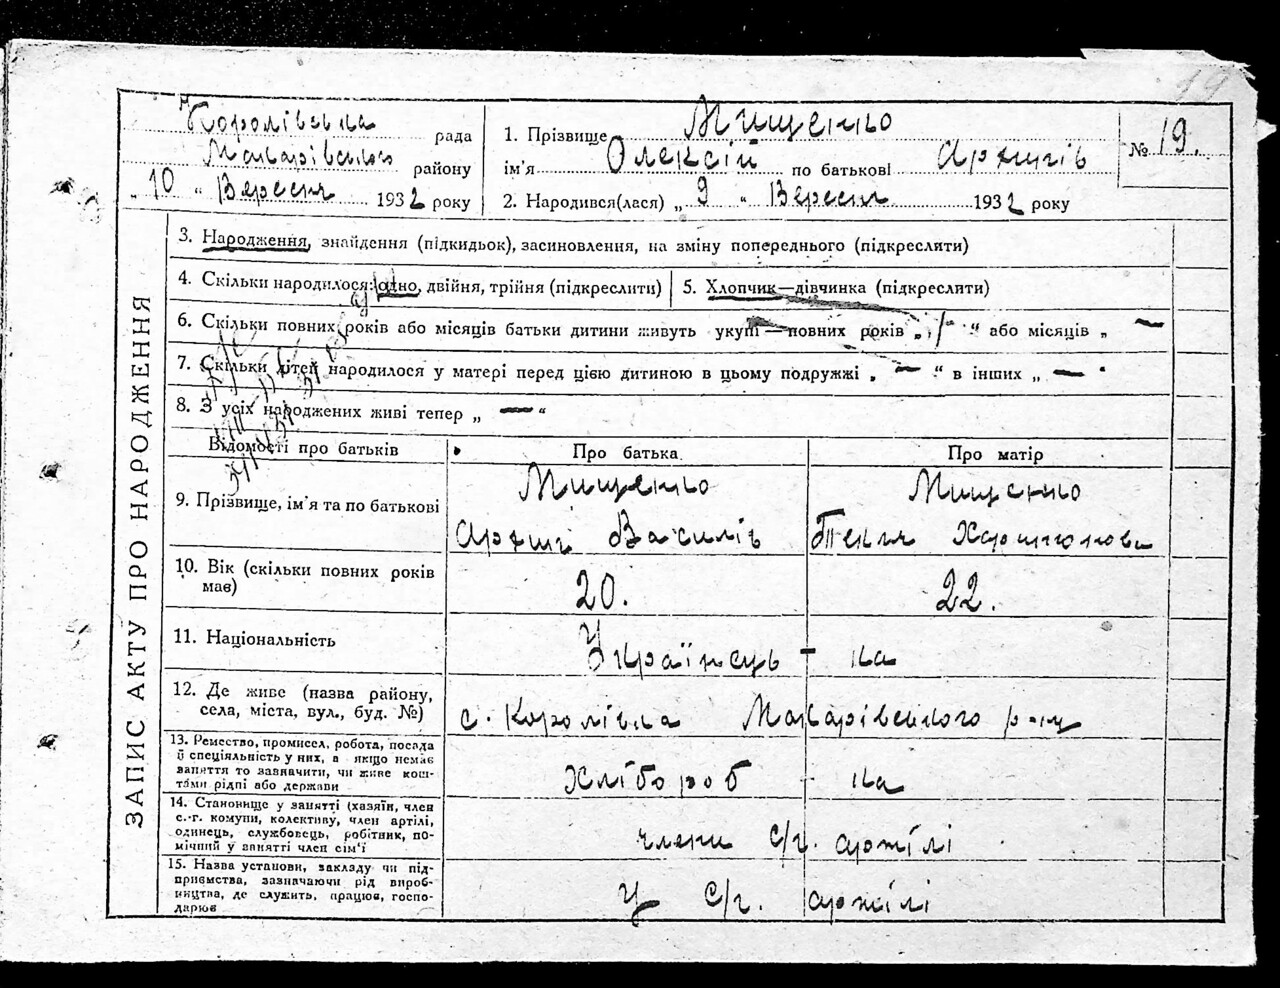 19
Королівська рада
Макарівського району
„ 10 “ Вересня 1932 року
1. Прізвище Мищенко
ім'я Олексій по батькові Архипів
2. Народився(лася) „ 9 “ Вересня 1932 року
№ 19.
ЗАПИС АКТУ ПРО НАРОДЖЕННЯ
3. Народження, знайдення (підкидьок), засиновлення, на зміну попереднього (підкреслити)
4. Скільки народилося: одно, двійня, трійня (підкреслити)
5. Хлопчик—дівчинка (підкреслити)
6. Скільки повних років або місяців батьки дитини живуть укупі—повних років „ 1/— “ або місяців „ —
7. Скільки дітей народилося у матері перед цією дитиною в цьому подружжі „ — “ в інших „ — “
8. З усіх народжених живі тепер „ — “
Відомості про батьків
Про батька
Про матір
9. Прізвище, ім'я та по батькові
Мищенко
Архип Василів
Мищенко
Текля Харитонова
10. Вік (скільки повних років
має)
20.
22.
11. Національність
Українець - ка
12. Де живе (назва району,
села, міста, вул., буд. №)
с. Королівка Макарівського р-ну
13. Ремество, промисел, робота, посада
й спеціяльність у них, а якщо немає
заняття то зазначити, чи живе кош-
тами рідні або держави
Хлібороб - ка
14. Становище у занятті (хазяїн, член
с.-г. комуни, колективу, член артілі,
одинець, службовець, робітник, по-
мічний у занятті член сім'ї
члени с/г. артілі
15. Назва установи, закладу чи під-
приємства, зазначаючи рід вироб-
ництва, де служить, працює, госпо-
дарює
у с/г. артілі